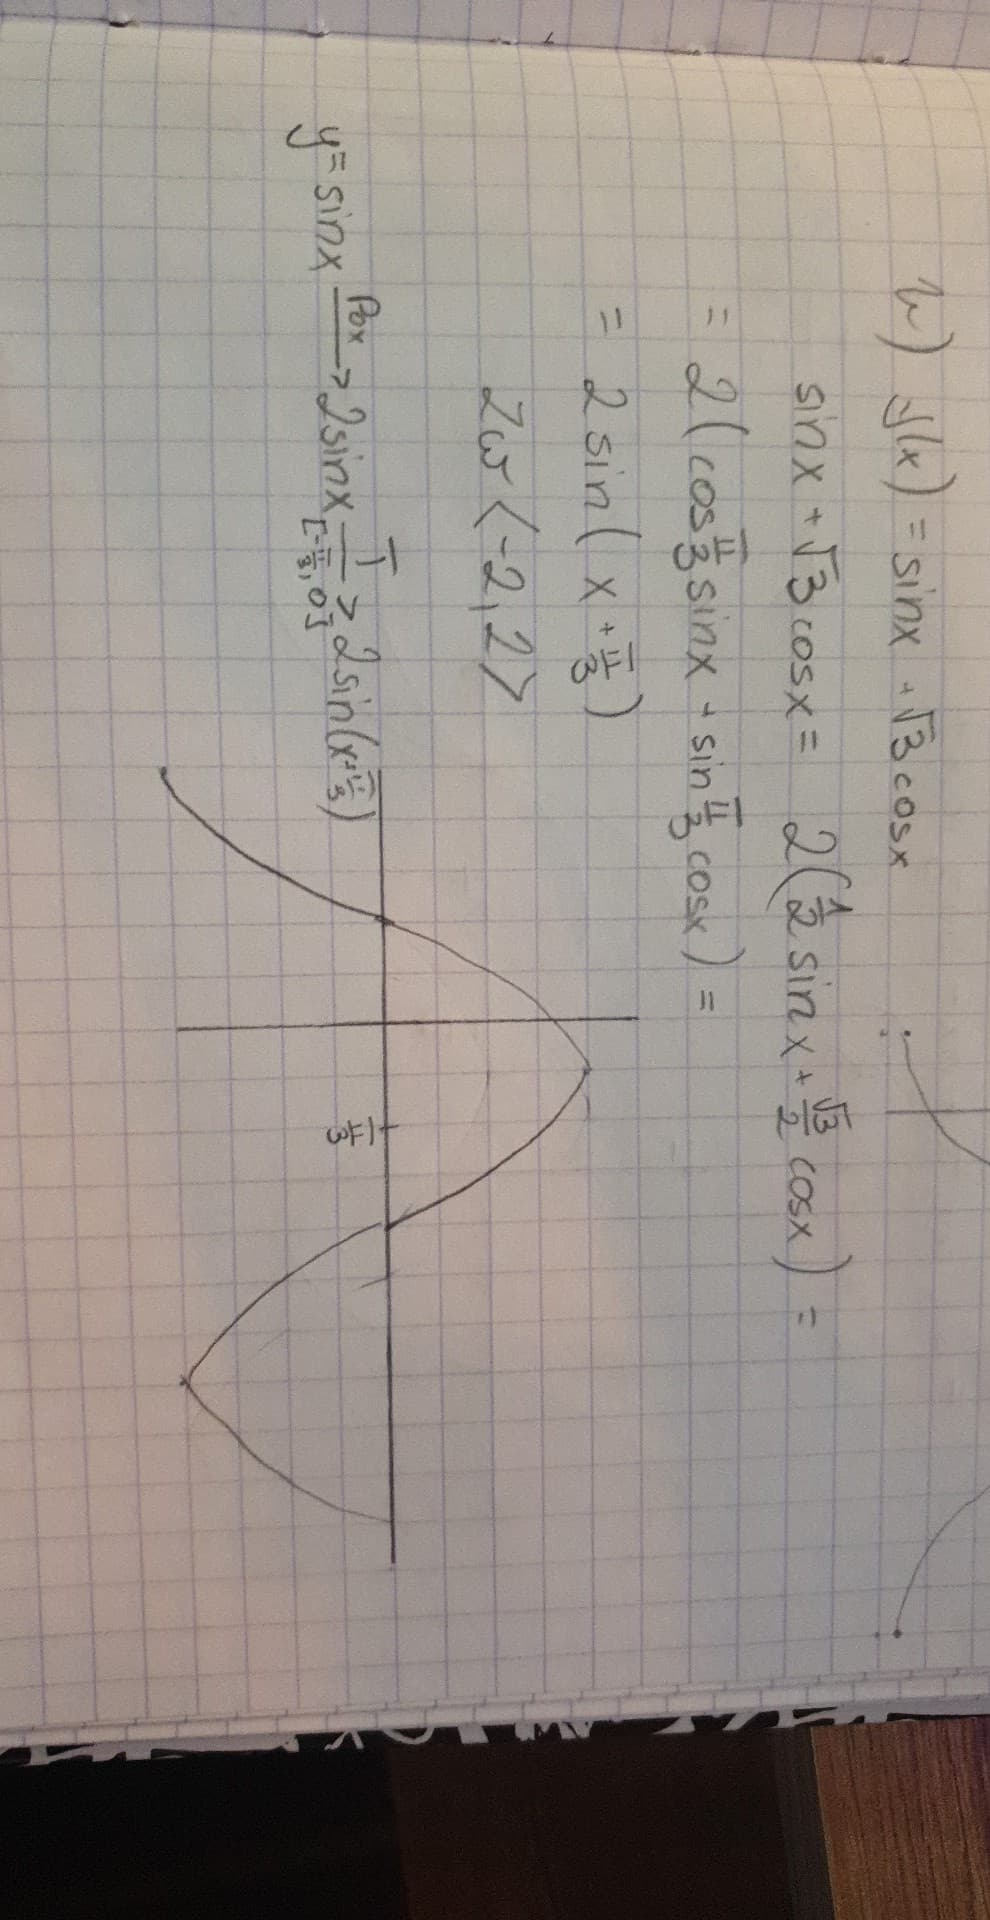 h) f(x) = sinx + √3 cosx
sinx + √3 cosx = 2(1/2 sinx + √3/2 cosx) =
= 2(cos π/3 sinx + sin π/3 cosx) =
= 2 sin(x + π/3)
Zw <-2, 2>
y = sinx Pox → 2sinx T [-π/3, 0] → 2sin(x+π/3)
π/3